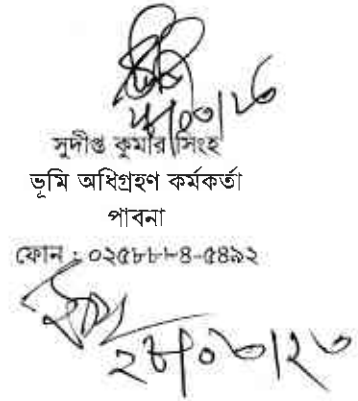 সুদীপ্ত কুমার সিংহ
ভূমি অধিগ্রহণ কর্মকর্তা
পাবনা
ফোন : ০২৫৮৮৮৪-৫৪৯২
২৮/০৩/২৩